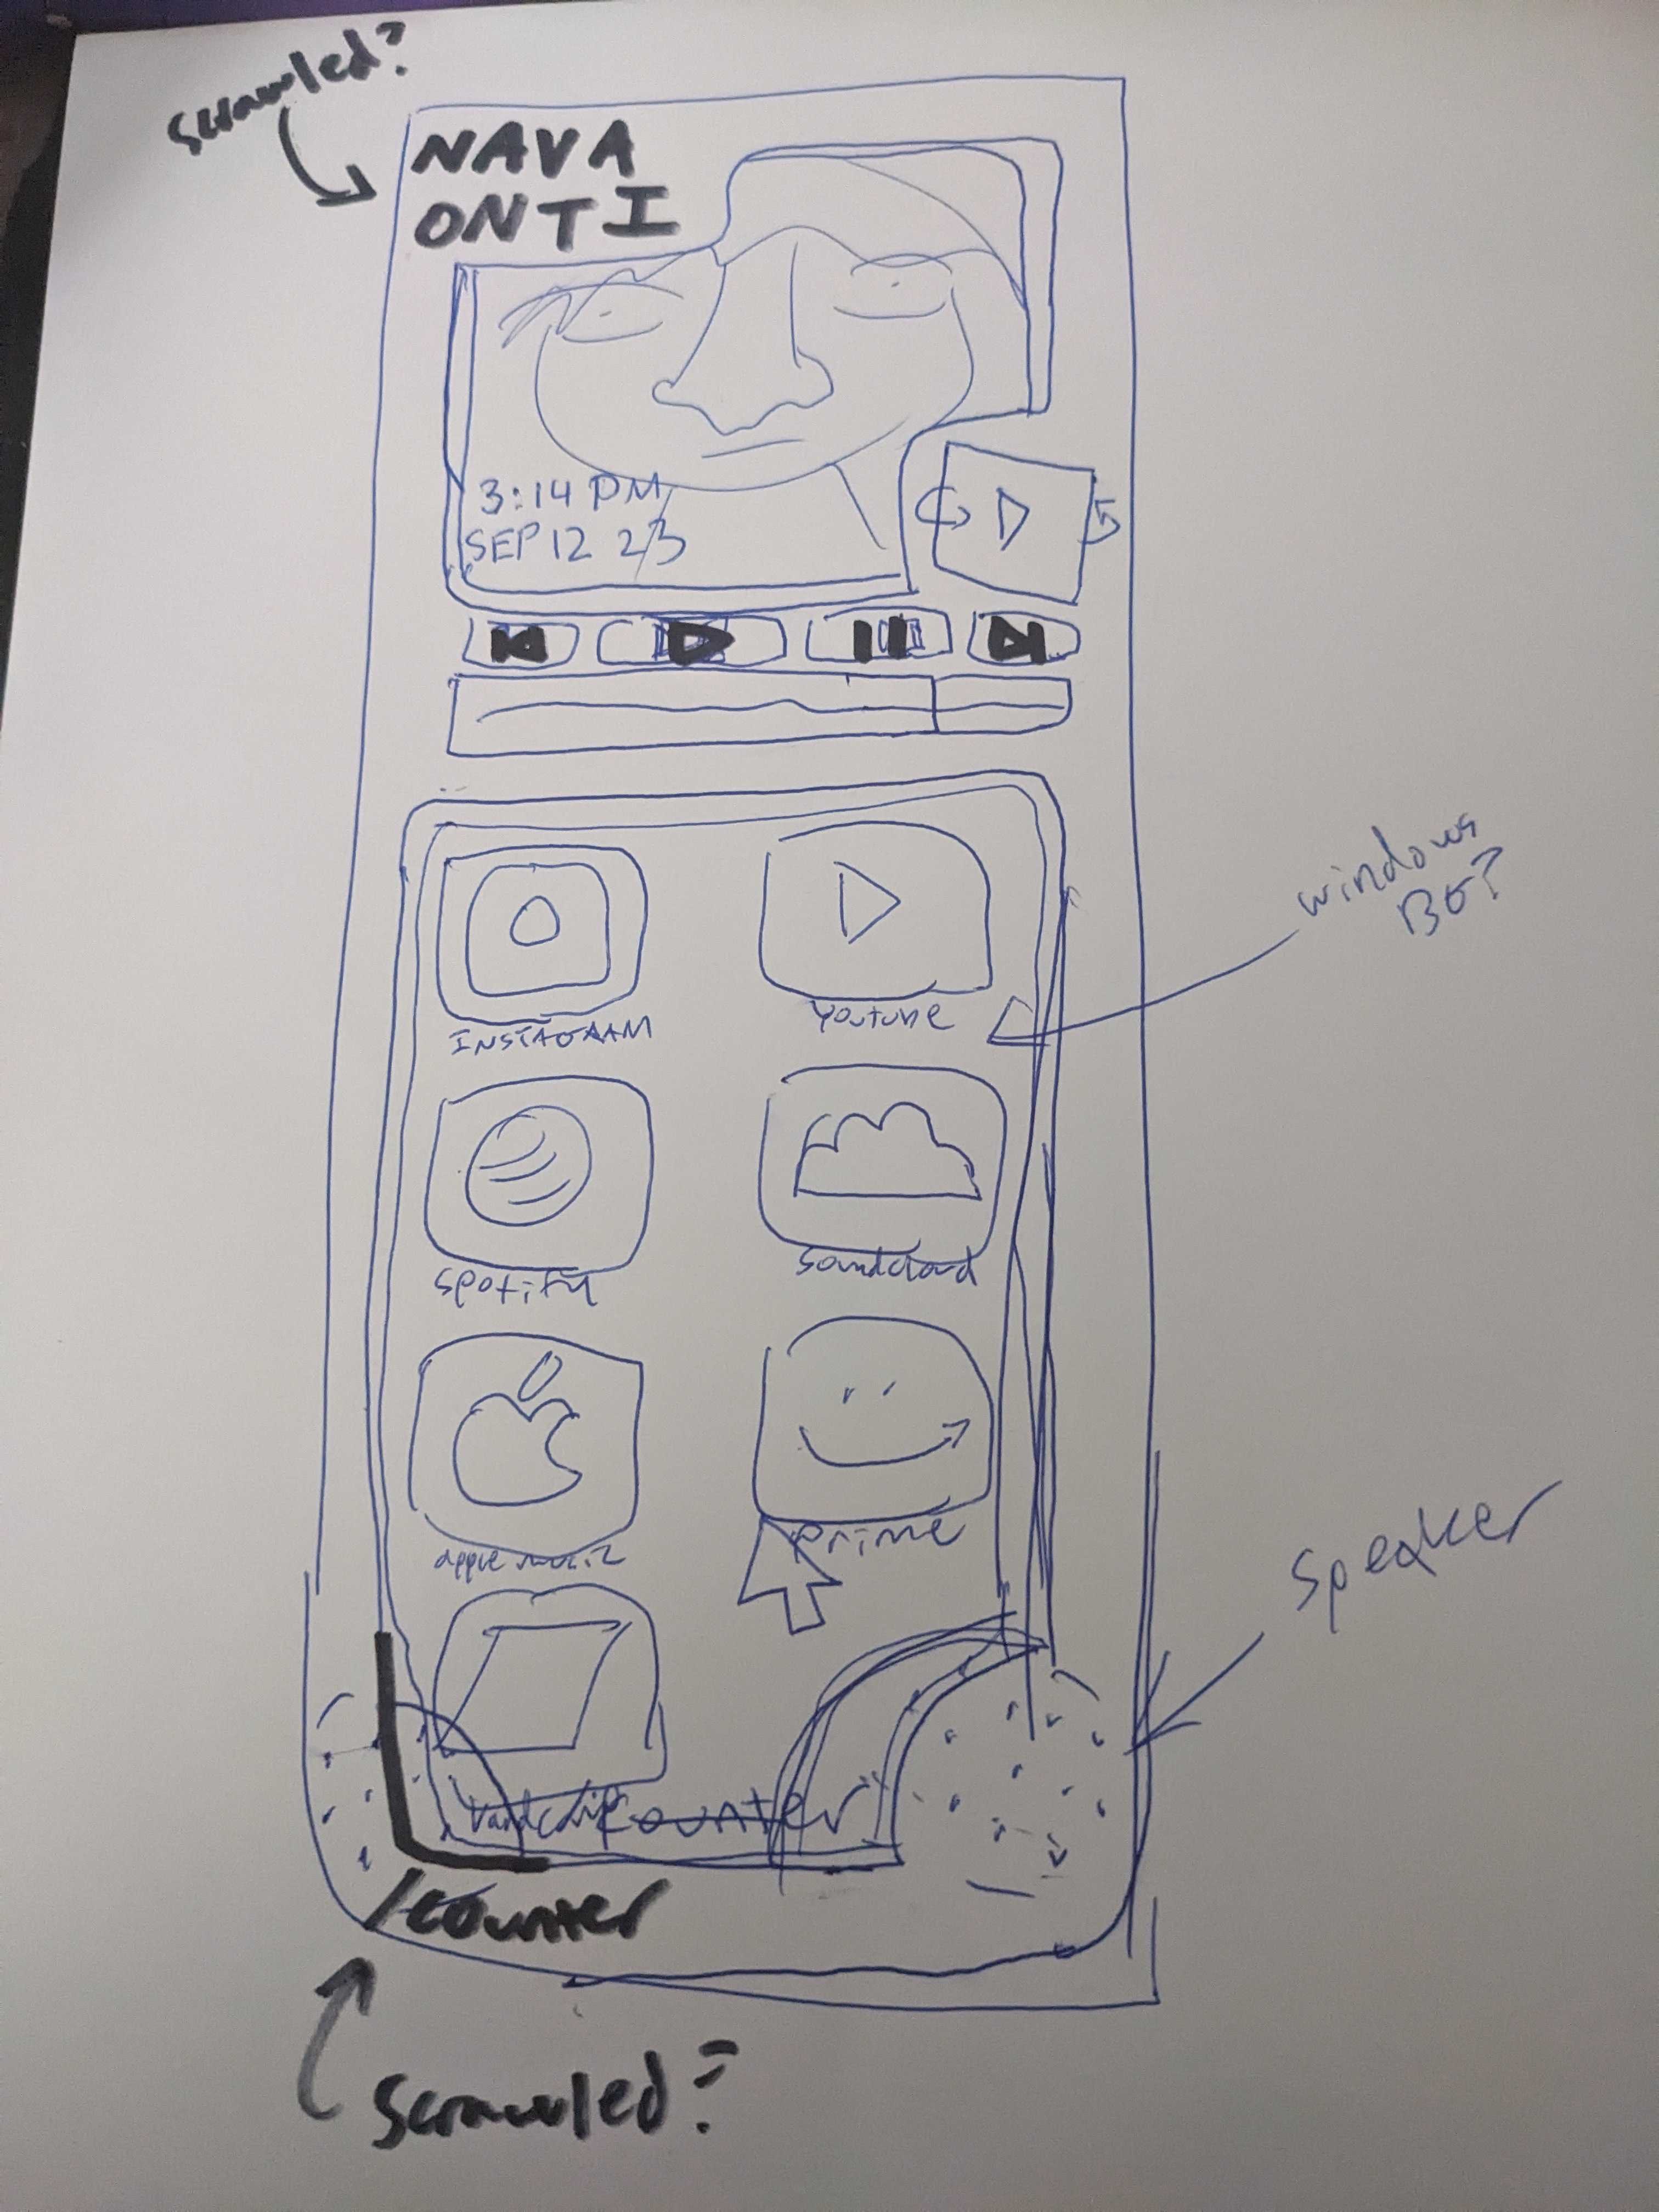 scrawled?
NAVA
ONTI
3:14 PM
SEP 12 23
windows
BG?
INSTAGRAM
Youtube
Spotify
Soundcloud
apple music
prime
Speaker
Bandcamp
counter
/counter
scrawled?